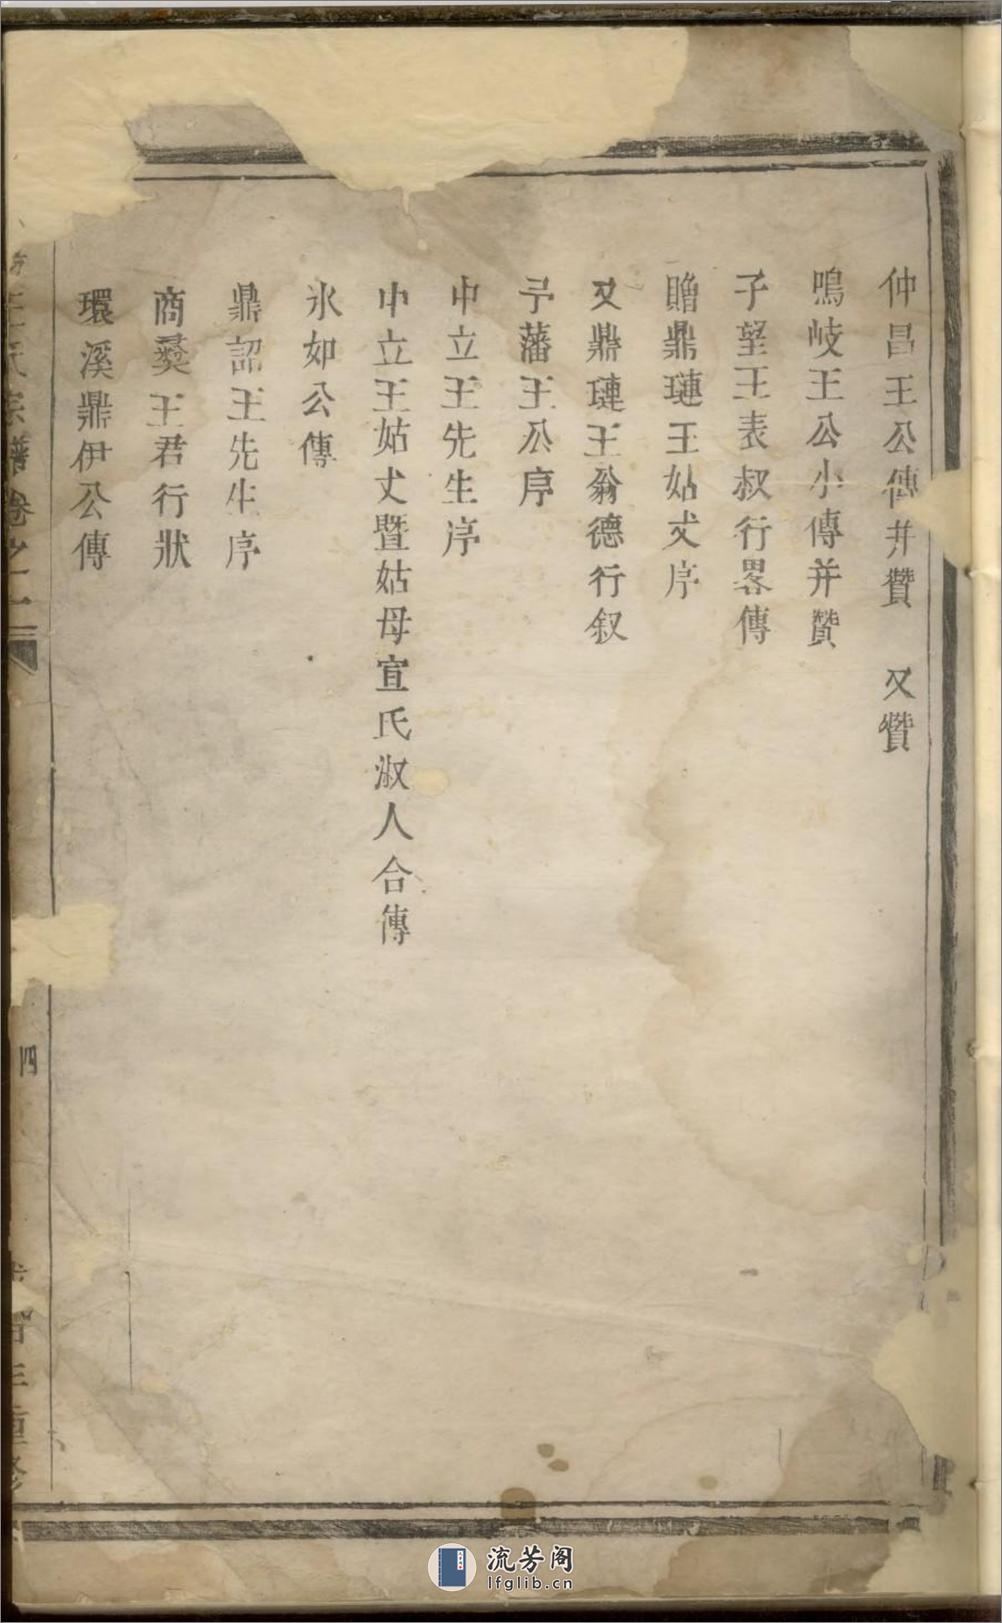 仲昌王公傳并贊　又贊
鳴岐王公小傳并贊
子望王表叔行畧傳
贈鼎璉王姑丈序
又鼎璉王翁德行叙
于藩王公序
中立王先生序
中立王姑丈暨姑母宣氏淑人合傳
氷如公傳
鼎詔王先生序
商彝王君行狀
環溪鼎伊公傳
王氏宗譜卷之二
四
年重修
流芳阁
lfglib.cn